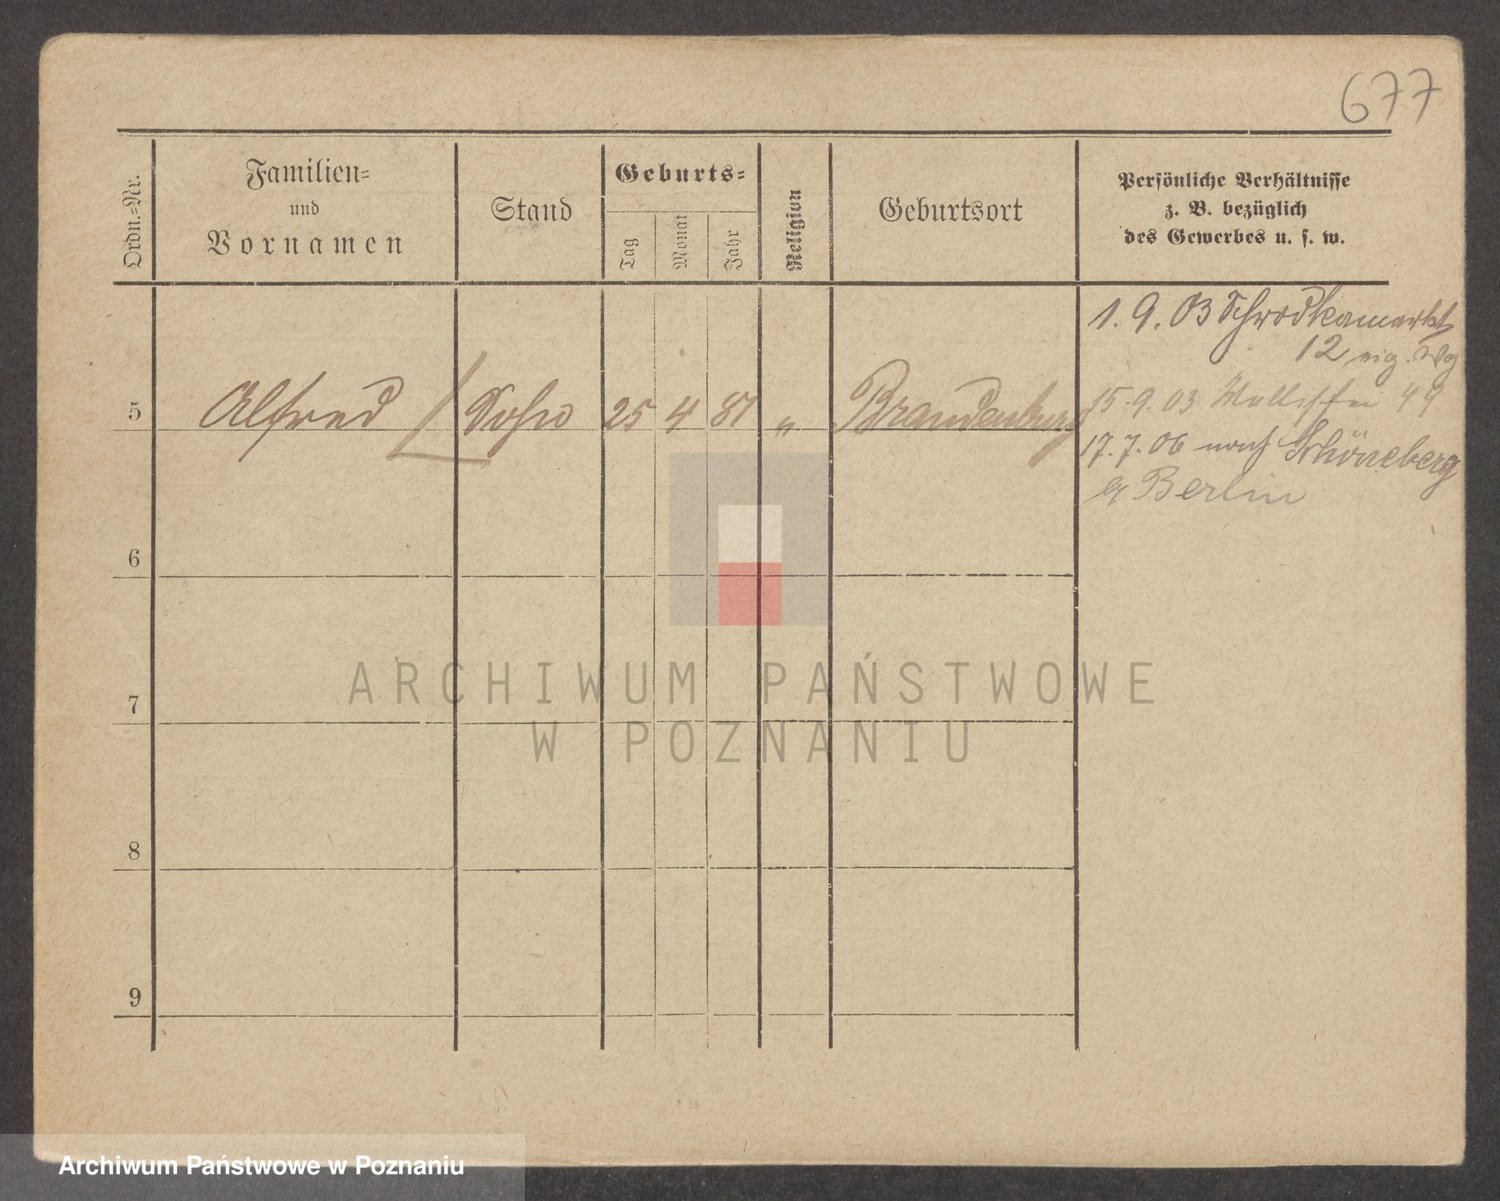 677
Ordn.=Nr.
Familien=
und
Vornamen
Stand
Geburts=
Tag
Monat
Jahr
Religion
Geburtsort
Persönliche Verhältnisse
z. B. bezüglich
des Gewerbes u. s. w.
5
Alfred
Sohn
25
4
81
"
Brandenburg
1. 9. 03 Schrodkamarkt
12 eig. Wg
15.9.03 49
17.7.06 nach Schöneberg
b/ Berlin
6
7
8
9
ARCHIWUM PAŃSTWOWE
W POZNANIU
Archiwum Państwowe w Poznaniu